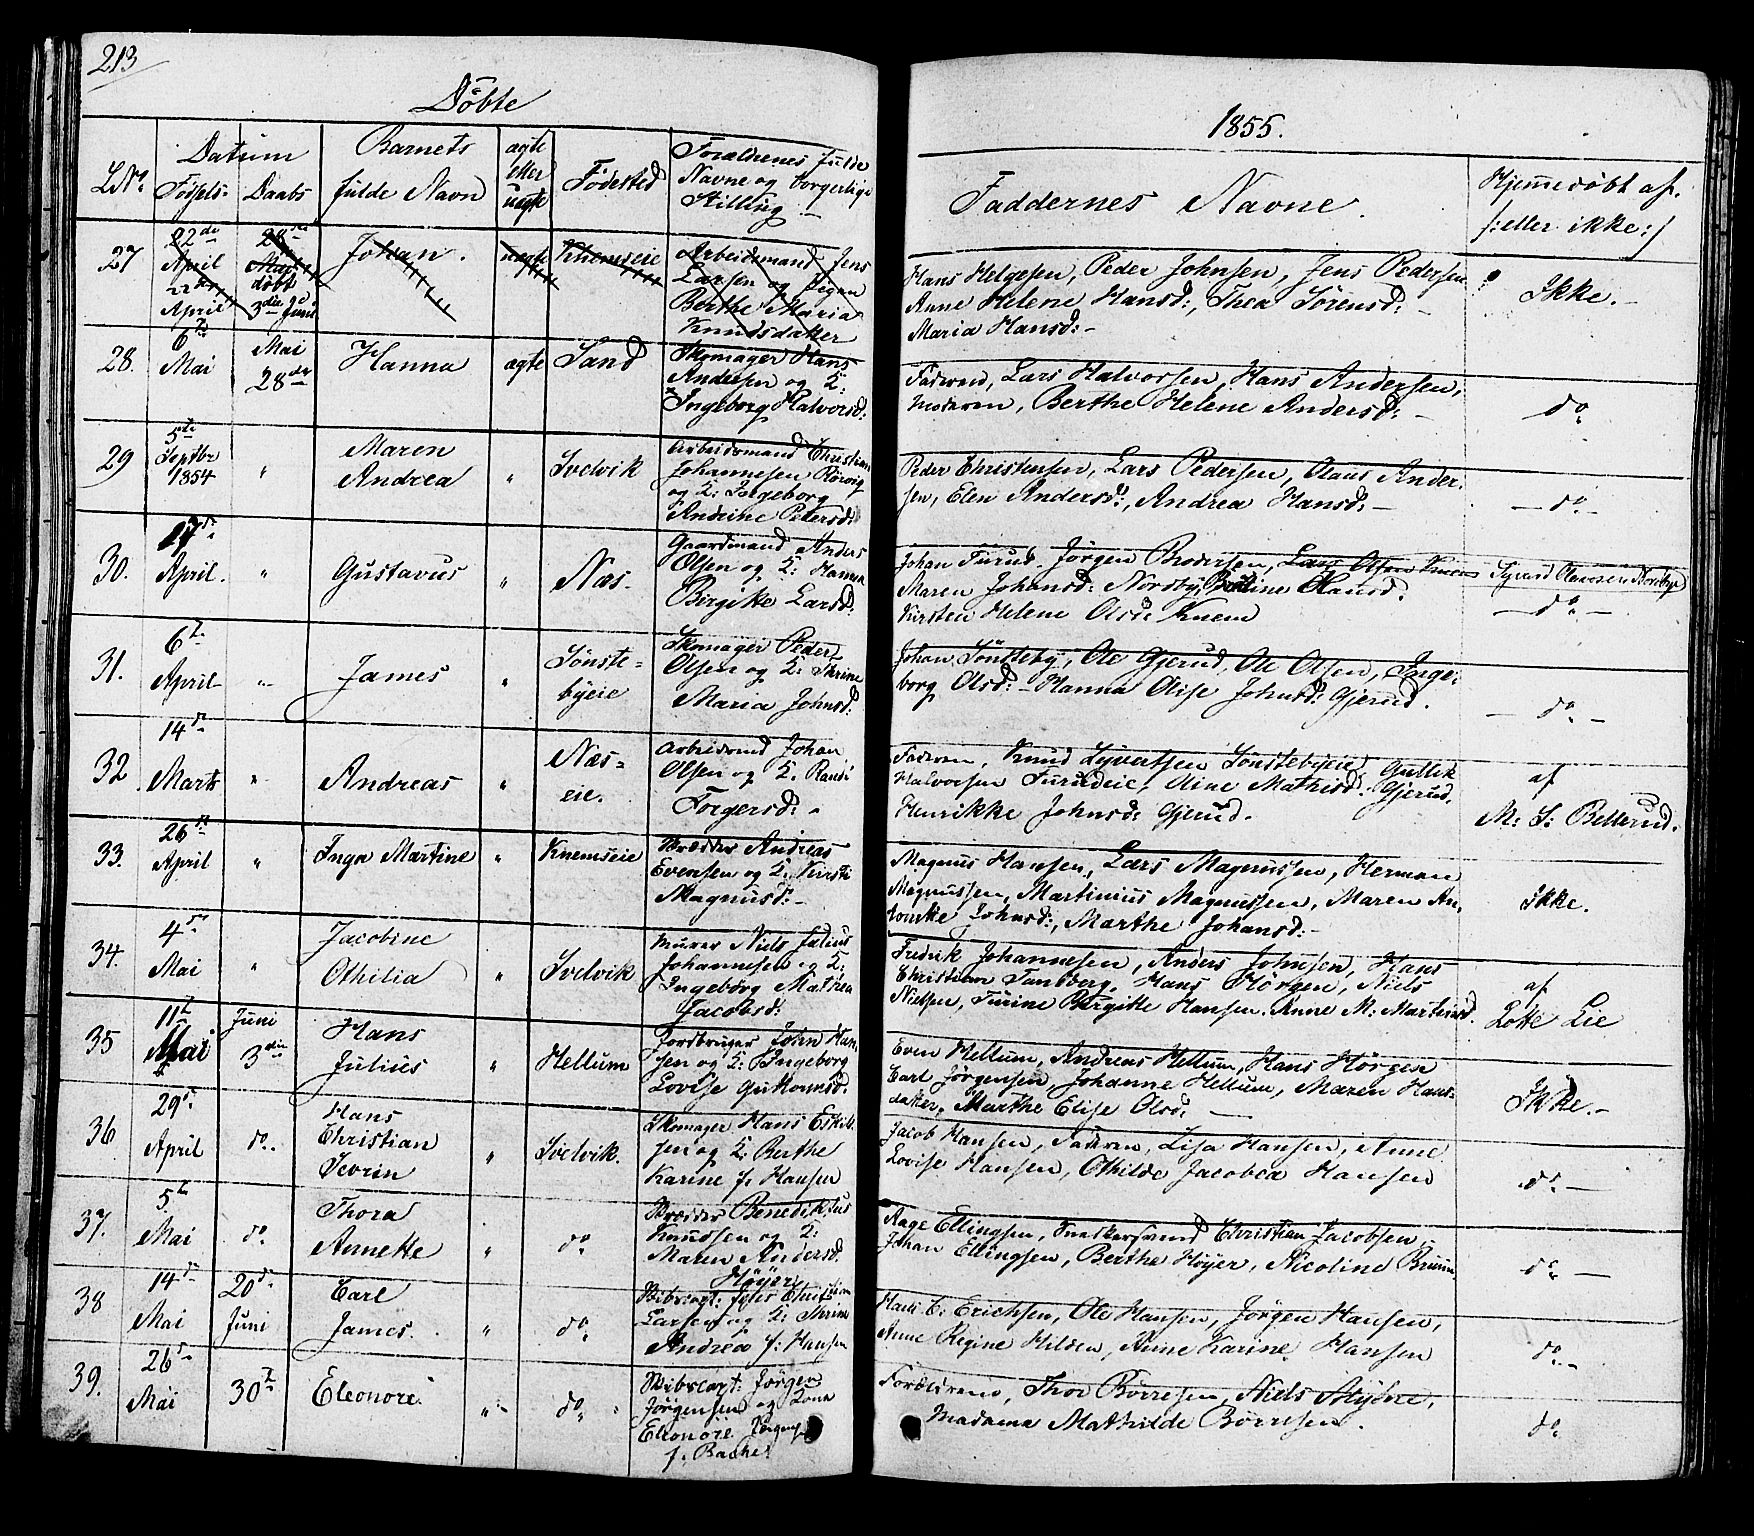 213
Döbte
1855.
L.No.
Datum
Fødsels-
Daabs
Barnets
fulde Navn
ægte
eller
uægte
Födested
Forældrenes fulde
Navne og borgerlige
Stilling
Faddernes Navne.
Hjemmedöbt af.
/:eller ikke:/
27
22de
April
22de
April
28de
Mai
döbt
3die Juni
Johan.
uægte
Knemseie
Arbeidsmand Jens
Larsen og Pigen
Berthe Maria
Knudsdatter
Hans Helgesen, Peder Johnsen, Jens Pedersen
Anne Helene Hansd:, Thea Sörensd:
Maria Hansd:-
Ikke.-
28.
6te
Mai
Mai
28de
Hanna
ægte
Sand
Skomager Hans
Andersen og K:
Ingeborg Halvorsd:
Faderen, Lars Halvorsen, Hans Andersen,
Moderen, Berthe Helene Andersd: -
do
29
5te
Septbr
1854
"
Maren
Andrea
"
Svelvik
Arbeidsmand Christian
Johannesen Rörvig
og K: Ingeborg
Andrine Petersd:
Peder Christensen, Lars Pedersen, Claus Ander-
sen, Elen Andersd:, Andrea Hansd: -
- do -
30.
April.
"
Gustavus
"
Næs.
Gaardmand Anders
Olsen og K: Hanna
Birgitte Larsd:
Johan Turud. Jörgen Brodersen, Lars Olsen Knem Sigurd Olavesen Nordbye
Maren Johansd: Nordby, Hansd.
Kirsten Helene Olsd: Knem
- do -
31.
6te
April
"
James
"
Sönste-
byeie
Skomager Peder
Olsen og K: Thrine
Maria Johnsd:
Johan Sönsteby, Ole Gjerud, Ole Olsen, Inge-
borg Olsd: - Hanna Elise Johnsd: Gjerud.
- do -
32
14de
Marts
"
Andreas
"
Næs-
eie.
Arbeidsmd Johan
Olsen og K. Randi
Torgersd: -
Faderen, Knud Syvertsen Sönstebyeie, Gullik
Halvorsen Turudeie, Aine Mathisd: Gjerud,
Henrikke Johnsd: Gjerud.
af
M: S: Bellerud.
33.
26de
April
"
Inga Martine
"
Knemseie
Skrædder Andreas
Evensen og K: Kirsti
Magnusd: -
Magnus Hansen, Lars Magnussen, Herman
Magnussen, Martinius Magnussen, Maren An-
tonette Johnsd:, Marthe Johansd: -
Ikke.
34.
4de
Mai
"
Jacobine
Othilia
"
Svelvik
Murer Niels Julius
Johannesen og K:
Ingeborg Mathea
Jacobsd:
Fredrik Johannesen, Anders Johnsen, Hans
Christian Tandberg, Hans Hörgen, Niels
Nielsen, Turine Birgitte Hansen. Anne M. Martinsd.
af
Lotte Lie
35
11te
Mai
Juni
3die
Hans
Julius
"
Hellum
Jordbruger John Han-
sen og K: Ingeborg
Lovise Guttormsd:
Even Hellum, Andreas Hellum, Hans Hörgen
Carl Jörgensen, Johanne Hellum, Maren Hans-
datter, Marthe Elise Olsd: -
Ikke.-
36
29de
April
do.
Hans
Christian
Severin
"
Svelvik.
Skomager Hans Eskild-
sen og K. Berthe
Karine f. Hansen
Jacob Hansen, Faderen, Lisa Hansen, Anne
Lovise Hansen, Othilde Jacobea Hansen
do -
37.
5te
Mai
do.
Thora
Annette
"
do
Skrædder Benediktus
Knudsen og K:
Maren Andersd:
Höyer
Aage Ellingsen, Snedkersvend Christian Jacobsen,
Johan Ellingsen, Berthe Höyer, Nicoline Bruun
do -
38
14de
Mai
20de
Juni
Carl
James.
"
do
Skibscapt: Jens Christian
Larsen og K: Thrine
Andrea f: Hansen
Hans C: Erichsen, Ole Hansen, Jörgen Hansen,
Anne Regine Hilden, Anne Karine Hansen
do -
39.
26de
Mai
30te
Eleonore
"
do
Skibscapt: Jörgen
Jörgensen og Kona
Eleonore
f. Bache
Forældrene, Thor Börresen, Niels
Madama Mathilde Börresen.
do